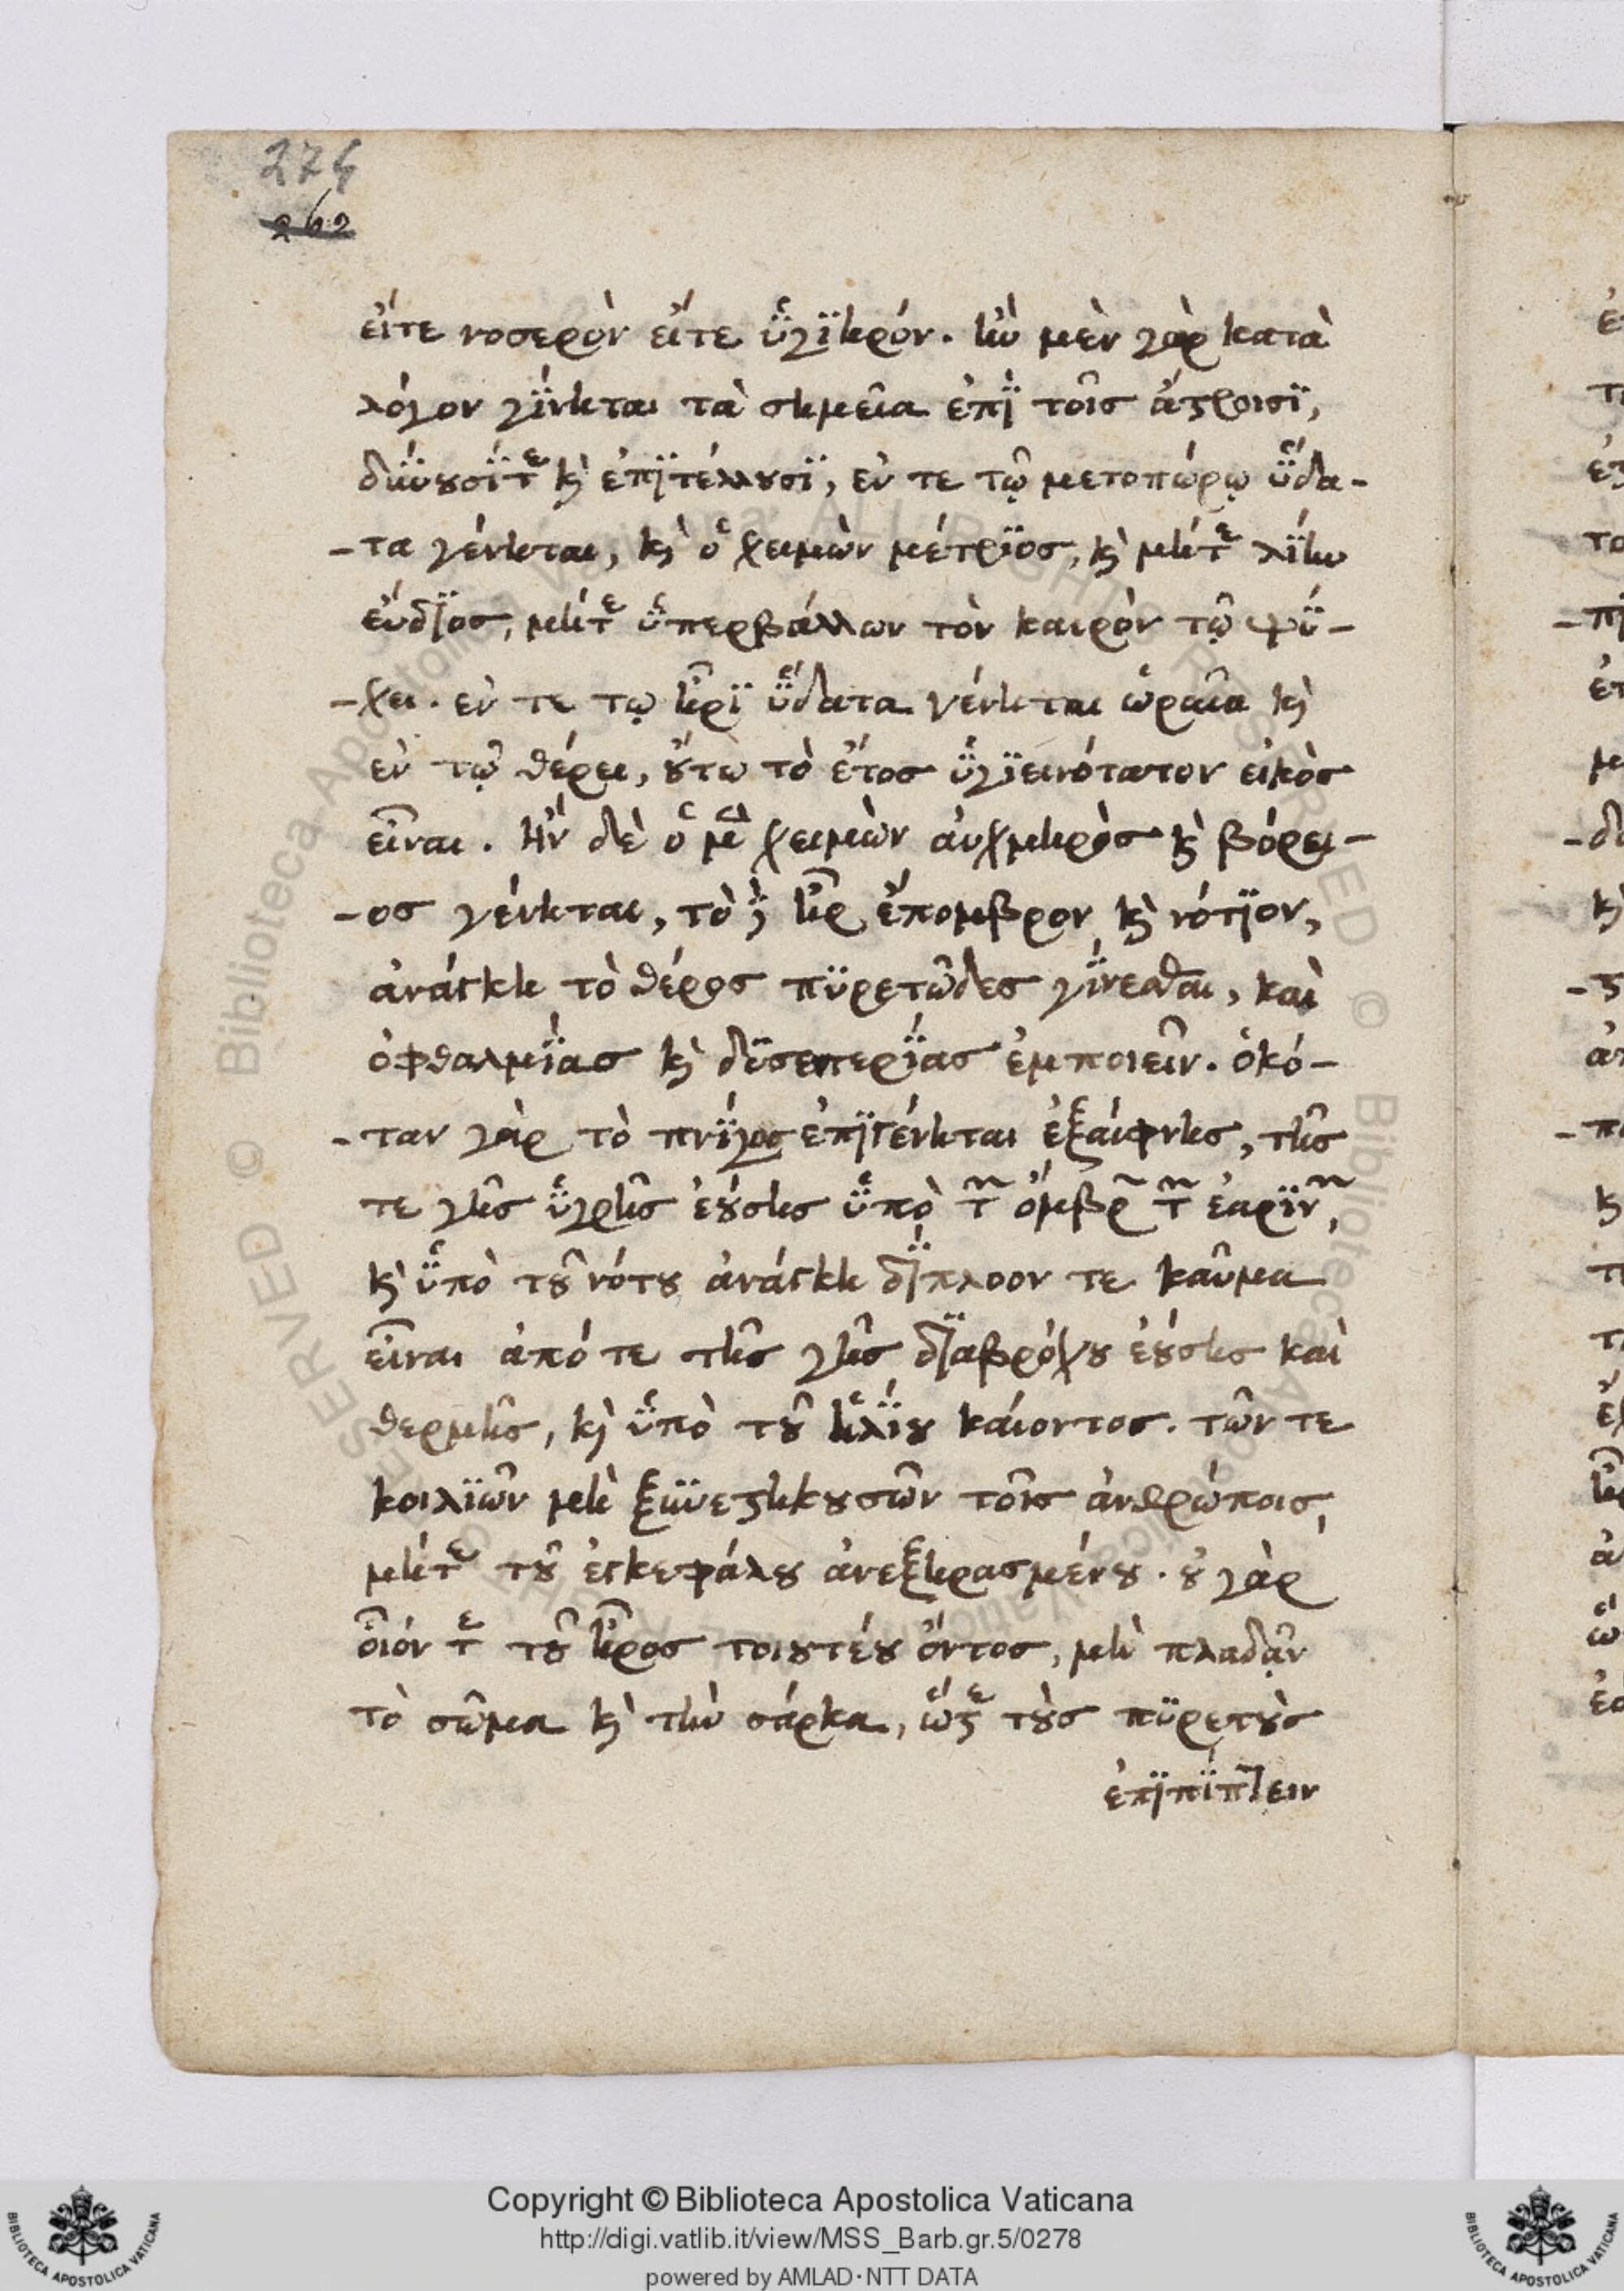 274
262
εἴτε νοσερὸν εἴτε ὑγϊηρόν. ἢν μὲν γὰρ κατὰ
λόγον γίνηται τὰ σημεῖα ἐπῒ τοῖς ἄστροισϊ,
δύνουσί τε κὶ ἐπϊτέλλουσϊ, ἐν τε τῷ μετοπώρῳ ὕδα-
-τα γένηται, κὶ ὁ χειμὼν μέτρϊος, κὶ μήτε λΐην
εὔδϊος, μήτε ὑπερβάλλων τὸν καιρὸν τῷ ψύ-
-χει. ἐν τε τῳ ἦρϊ ὕδατα γένηται ὡραῖα κὶ
ἐν τῷ θέρει, ούτω τὸ ἔτος ὑγϊεινότατον εἰκὸς
εἶναι. Ἢν δὲ ὁ μὲν χειμὼν αὐχμηρὸς κὶ βόρει-
-ος γένηται, τὸ δὲ ἦρ ἔπομβρον κὶ νότϊον,
ἀνάγκη τὸ θέρος πϋρετῶδες γίνεσθαι, καὶ
ὀφθαλμΐας κὶ δϋσεντερΐας ἐμποιεῖν. ὁκό-
-ταν γὰρ τὸ πνῖγος ἐπϊγένηται ἐξαίφνης, τῆς
τε γῆς ὑγρῆς ἐούσης ὑπὸ τῶν ὄμβρων τῶν ἐαρϊνῶν,
κὶ ὑπὸ τοῦ νότου ἀνάγκη δϊπλοον τε καῦμα
εἶναι ἀπό τε τῆς γῆς δϊαβρόχου ἐούσης καὶ
θερμῆς, κὶ ὑπὸ τοῦ ἡλΐου καίοντος. τῶν τε
κοιλϊῶν μὴ ξυνεστηκουσῶν τοῖς ἀνθρώποις,
μήτε τοῦ ἐγκεφάλου ἀνεξηρασμένου. οὐ γὰρ
οἷόν τε τοῦ ἦρος τοιουτέου ὄντος, μὴ πλαδᾷν
τὸ σῶμα κὶ τὴν σάρκα, ὥστε τοὺς πϋρετοὺς
ἐπϊπίπτειν
Copyright © Biblioteca Apostolica Vaticana
http://digi.vatlib.it/view/MSS_Barb.gr.5/0278
powered by AMLAD·NTT DATA